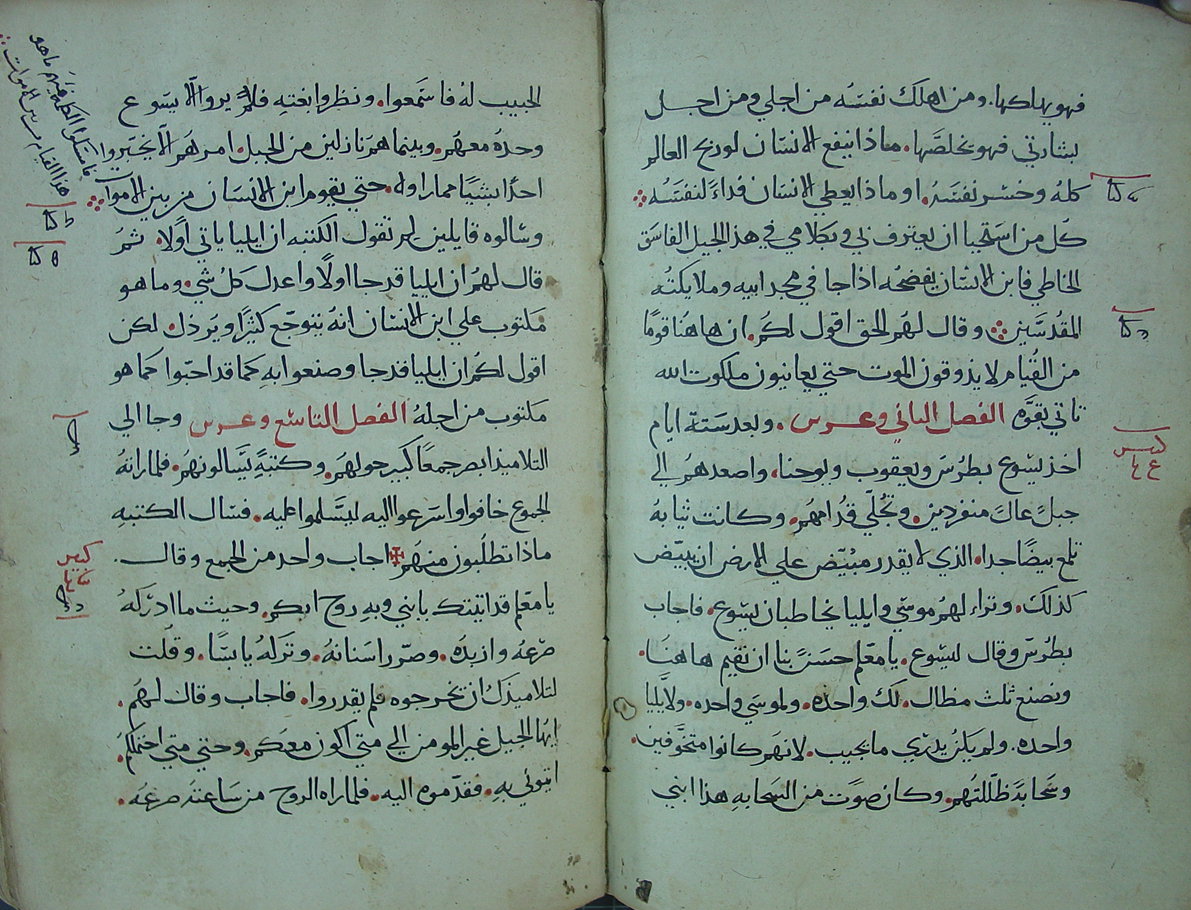 فهو يهلكها. ومن اهلك نفسه من اجلي ومن اجل
بشارتي فهو يخلصها. ماذا ينفع الانسان لو ربح العالم
كله وخسر نفسه. او ماذا يعطي الانسان فداءً لنفسه
كل من استحيا ان يعترف بي وبكلامي في هذا الجيل الفاسق
الخاطي فابن الانسان يفضحه اذا جا في مجد ابيه وملايكته
المقدسين وقال لهم الحق اقول لكم. ان هاهنا قومًا
من القيام لا يذوقون الموت حتي يعاينون ملكوت الله
تاتي بقوه الفصل الثاني وعشرين. وبعد ستة ايام
اخذ يسوع بطرس ويعقوب ويوحنا. واصعدهم الي
جبلٍ عالٍ منفردين. وتجلي قدامهم. وكانت ثيابه
تلمع بيضًا جدا. الذي لا يقدر مبيّض علي الارض ان يبيّض
كذلك. وتراء لهم موسي وايليا يخاطبان ليسوع. فاجاب
بطرس وقال ليسوع. يا معلم حسنٌ بنا ان نقيم هاهنا.
ونصنع ثلث مظال. لك واحده. ولموسي واحده. ولايليا
واحده. ولم يكن يدري ما يجيب. لانهم كانوا متخوفين.
وسحابة ظللتهم. وكان صوت من السحابه هذا ابني
الحبيب له فاسمعوا. ونظروا بغتةً فلم يروا الا يسوع
وحده معهم. وبينما هم نازلين من الجبل. امرهم الا يخبروا
احدًا بشيًا مما راوه. حتي يقوم ابن الانسان من بين الاموات
فامسكوا الكلمه فيهم ما هو
هذا القيام من بين الاموات
وسالوه قايلين لم تقول الكتبه ان ايليا ياتي اولًا. ثم
قال لهم ان ايليا قد جا اولًا واعدل كل شي. وما هو
مكتوب علي ابن الانسان انه يتوجع كثيرًا ويرذل. لكن
اقول لكم ان ايليا قد جا وصنعوا به كما قد احبوا كما هو
مكتوب من اجله الفصل التاسع وعشرين وجا الي
التلاميذ ابصر جمعًا كبير حولهم. وكتبةٍ يسالونهم. فلما رانه
الجموع خافوا واسرعوا اليه ليسلموا عليه. فسال الكتبه
ماذا تطلبون منهم اجاب واحد من الجمع وقال.
يا معلم قد اتيتك يا بني وبه روح ابكم. وحيث ما ادركه
صرعه وازبده. وصرّر اسنانه. وتركه يابسًا. وقلت
لتلاميذك ان يخرجوه فلم يقدروا. فاجاب وقال لهم.
ايها الجيل غير المومن الي متي اكون معكم. وحتي متي احتملكم.
ايتوني به. فقدموه اليه. فلما راه الروح من ساعته صرعه.